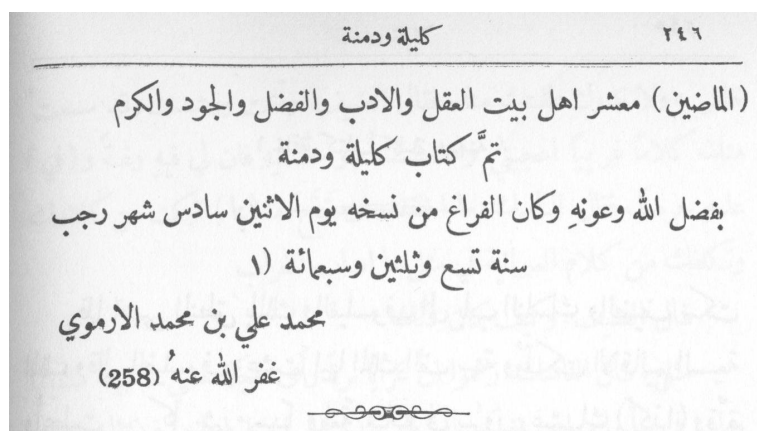 ٢٤٦ كليلة ودمنة
(الماضين) معشر اهل بيت العقل والادب والفضل والجود والكرم
تمَّ كتاب كليلة ودمنة
بفضل الله وعونهِ وكان الفراغ من نسخه يوم الاثنين سادس شهر رجب
سنة تسع وثلثين وسبعمائة (١
محمد علي بن محمد الارموي
غفر الله عنهُ (258)